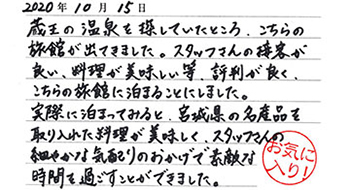 2020年10月15日
蔵王の温泉を探していたところ、こちらの
旅館が出てきました。スタッフさんの接客が
良い、料理が美味しい等、評判が良く、
こちらの旅館に泊まることにしました。
実際に泊まってみると、宮城県の名産品を
取り入れた料理が美味しく、スタッフさんの
細やかな気配りのおかげで素敵な
時間を過ごすことができました。
お気に
入り!